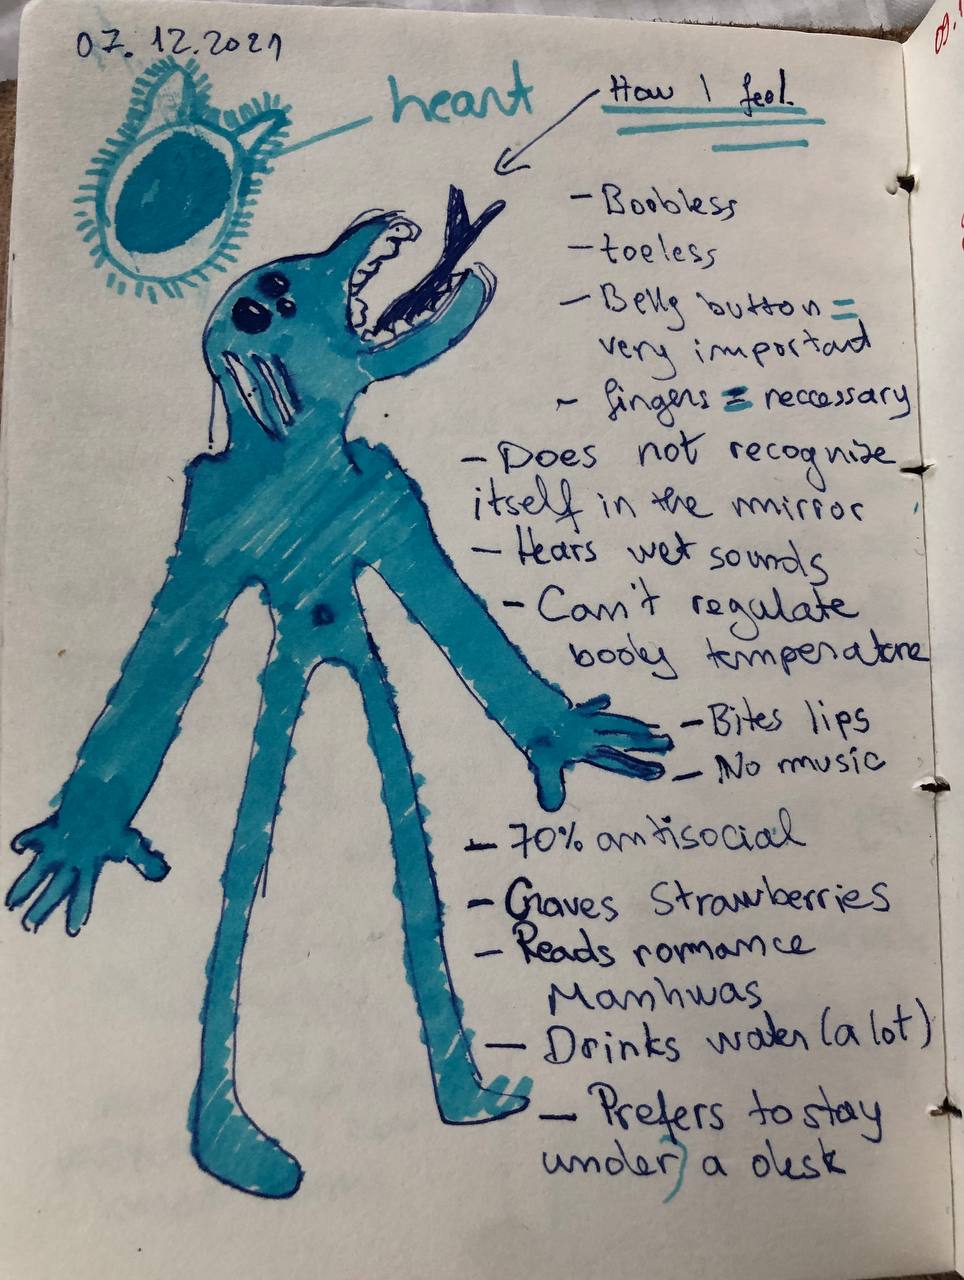 07.12.2021
heart
How I feel
- Boobless
- toeless
- Belly button =
very important
- fingers = neccessary
- Does not recognize
itself in the mirror
- Hears wet sounds
- Can't regulate
body temperature
- Bites lips
- No music
- 70% antisocial
- Craves strawberries
- Reads romance
Manhwas
- Drinks water (a lot)
- Prefers to stay
under a desk